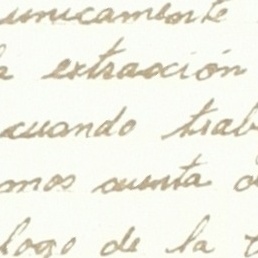 unicamente
a extracción
cuando trab
mos cuenta d
logo de la t